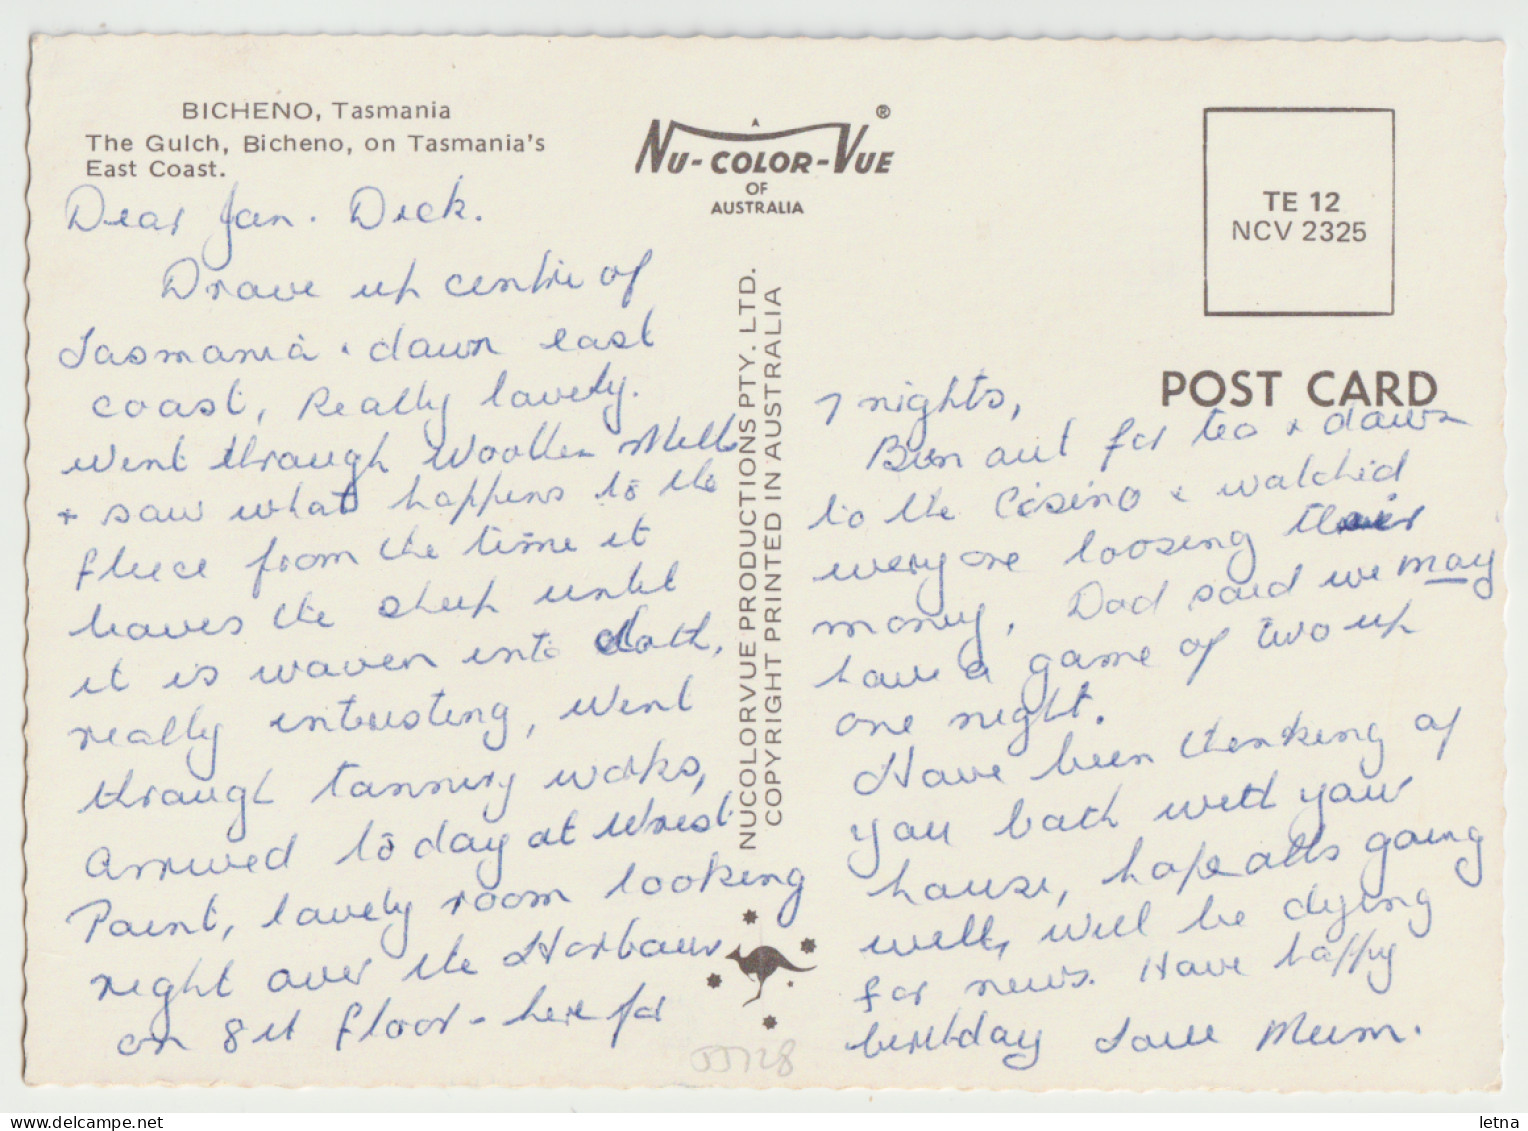 BICHENO, Tasmania
The Gulch, Bicheno, on Tasmania's
East Coast.
A
NU-COLOR-VUE®
OF
AUSTRALIA
TE 12
NCV 2325
POST CARD
NUCOLORVUE PRODUCTIONS PTY. LTD.
COPYRIGHT PRINTED IN AUSTRALIA
Dear Jan. Dick.
Drove up centre of
Tasmania & down east
coast, Really lovely.
Went through Woollen Mills
+ saw what happens to the
fleece from the time it
leaves the sheep until
it is woven into cloth,
really intresting, Went
through tannery works,
Arrived to day at Wrest
Point, lovely room looking
right over the Harbour
on 8th floor - here for
7 nights,
Been out for tea & down
to the Casino & watched
everyone loosing their
money. Dad said we may
have a game of two up
one night.
Have been thinking of
you both with your
house, hope alls going
well, will be dying
for news. Have happy
birthday Love Mum.
letna